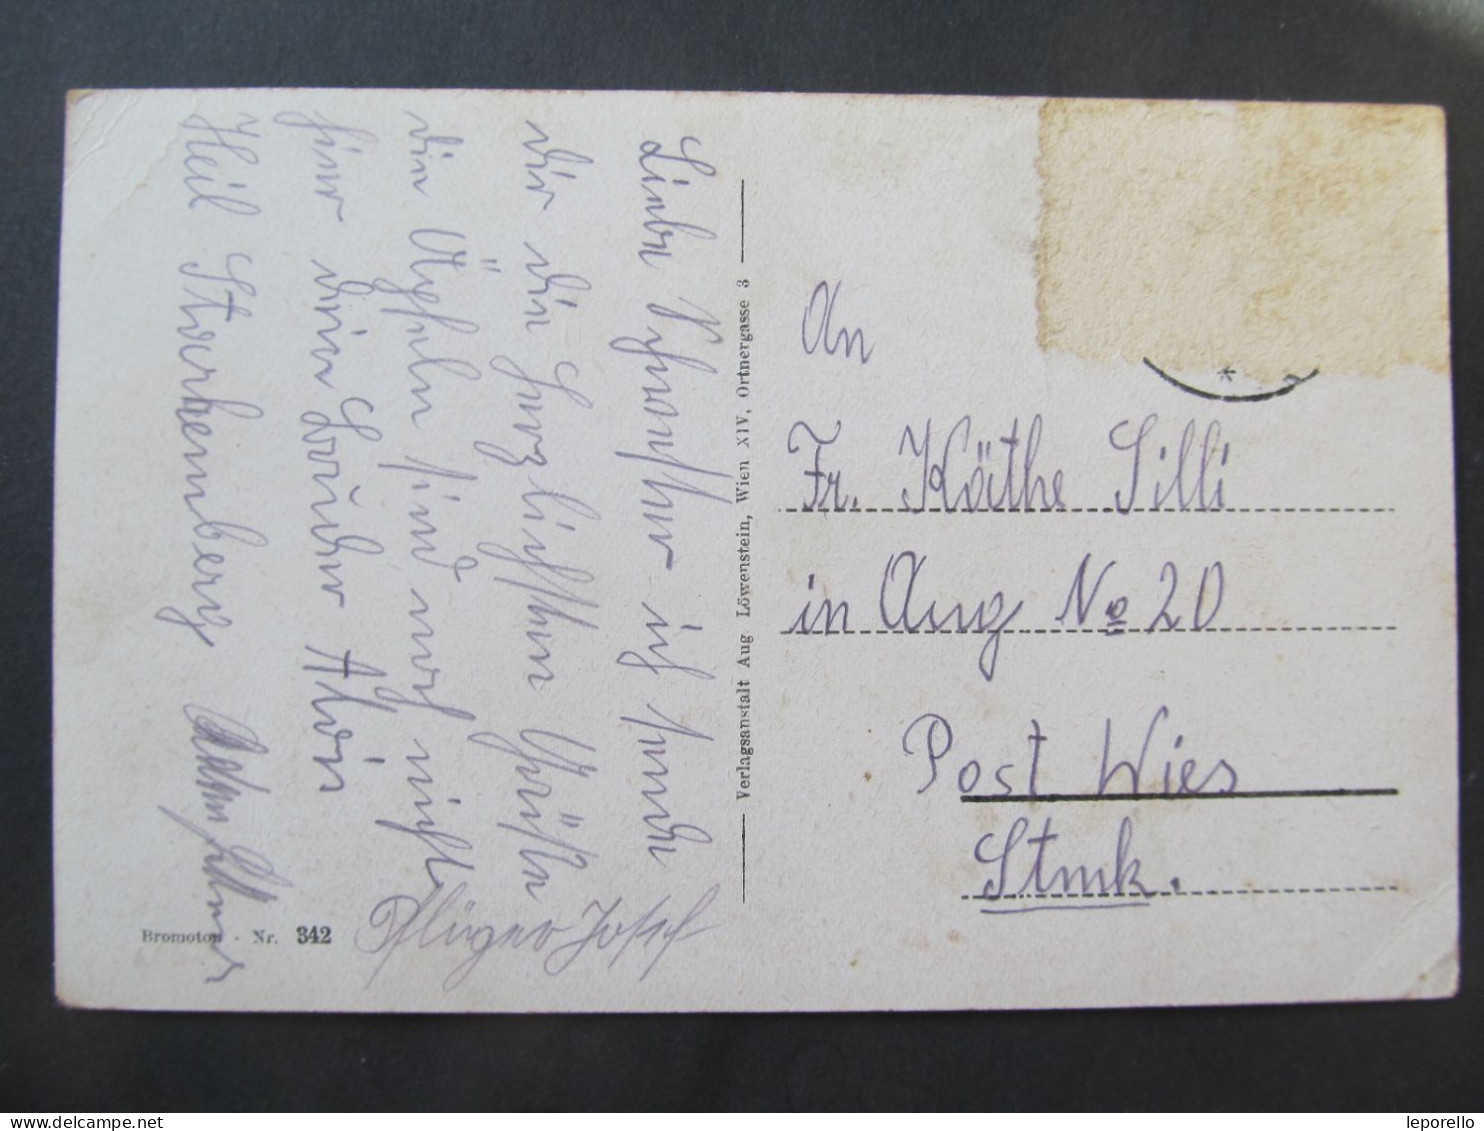 Liebe Schwester ich sende
dir die Herzlichsten Grüße
die Äpfeln sind noch nicht
hier dein Bruder Alvin
Heil Starhemberg
Pflüger Josef
Verlagsanstalt Aug Löwenstein, Wien XIV, Ortnergasse 3
Bromoton - Nr. 342
An
Fr. Käthe Silli
in Aug No 20
Post Wies
Stmk.
leporello